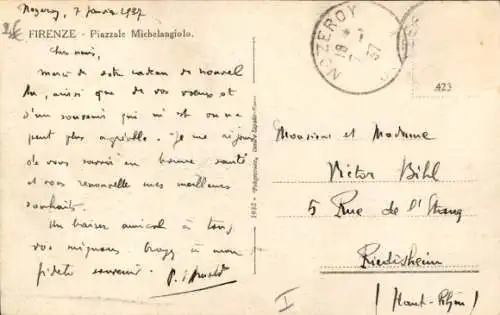 Nozeroy, 7 Janvier 1937
FIRENZE - Piazzale Michelangiolo.
Chers amis,
Merci de votre cadeau de nouvel
An, ainsi que de vos vœux et
d'un souvenir qui m'est on ne
peut plus agréable. Je me réjouis
de vous savoir en bonne santé
et vous renouvelle mes meilleurs
souhaits.
Un baiser amical à tous
vos mignons. Croyez à mon
fidèle souvenir.
NOZEROY
18
7 -1
37
423
Monsieur et Madame
Victor Bihl
5 Rue de l'Etang
Riedisheim
(Haut-Rhin)
I